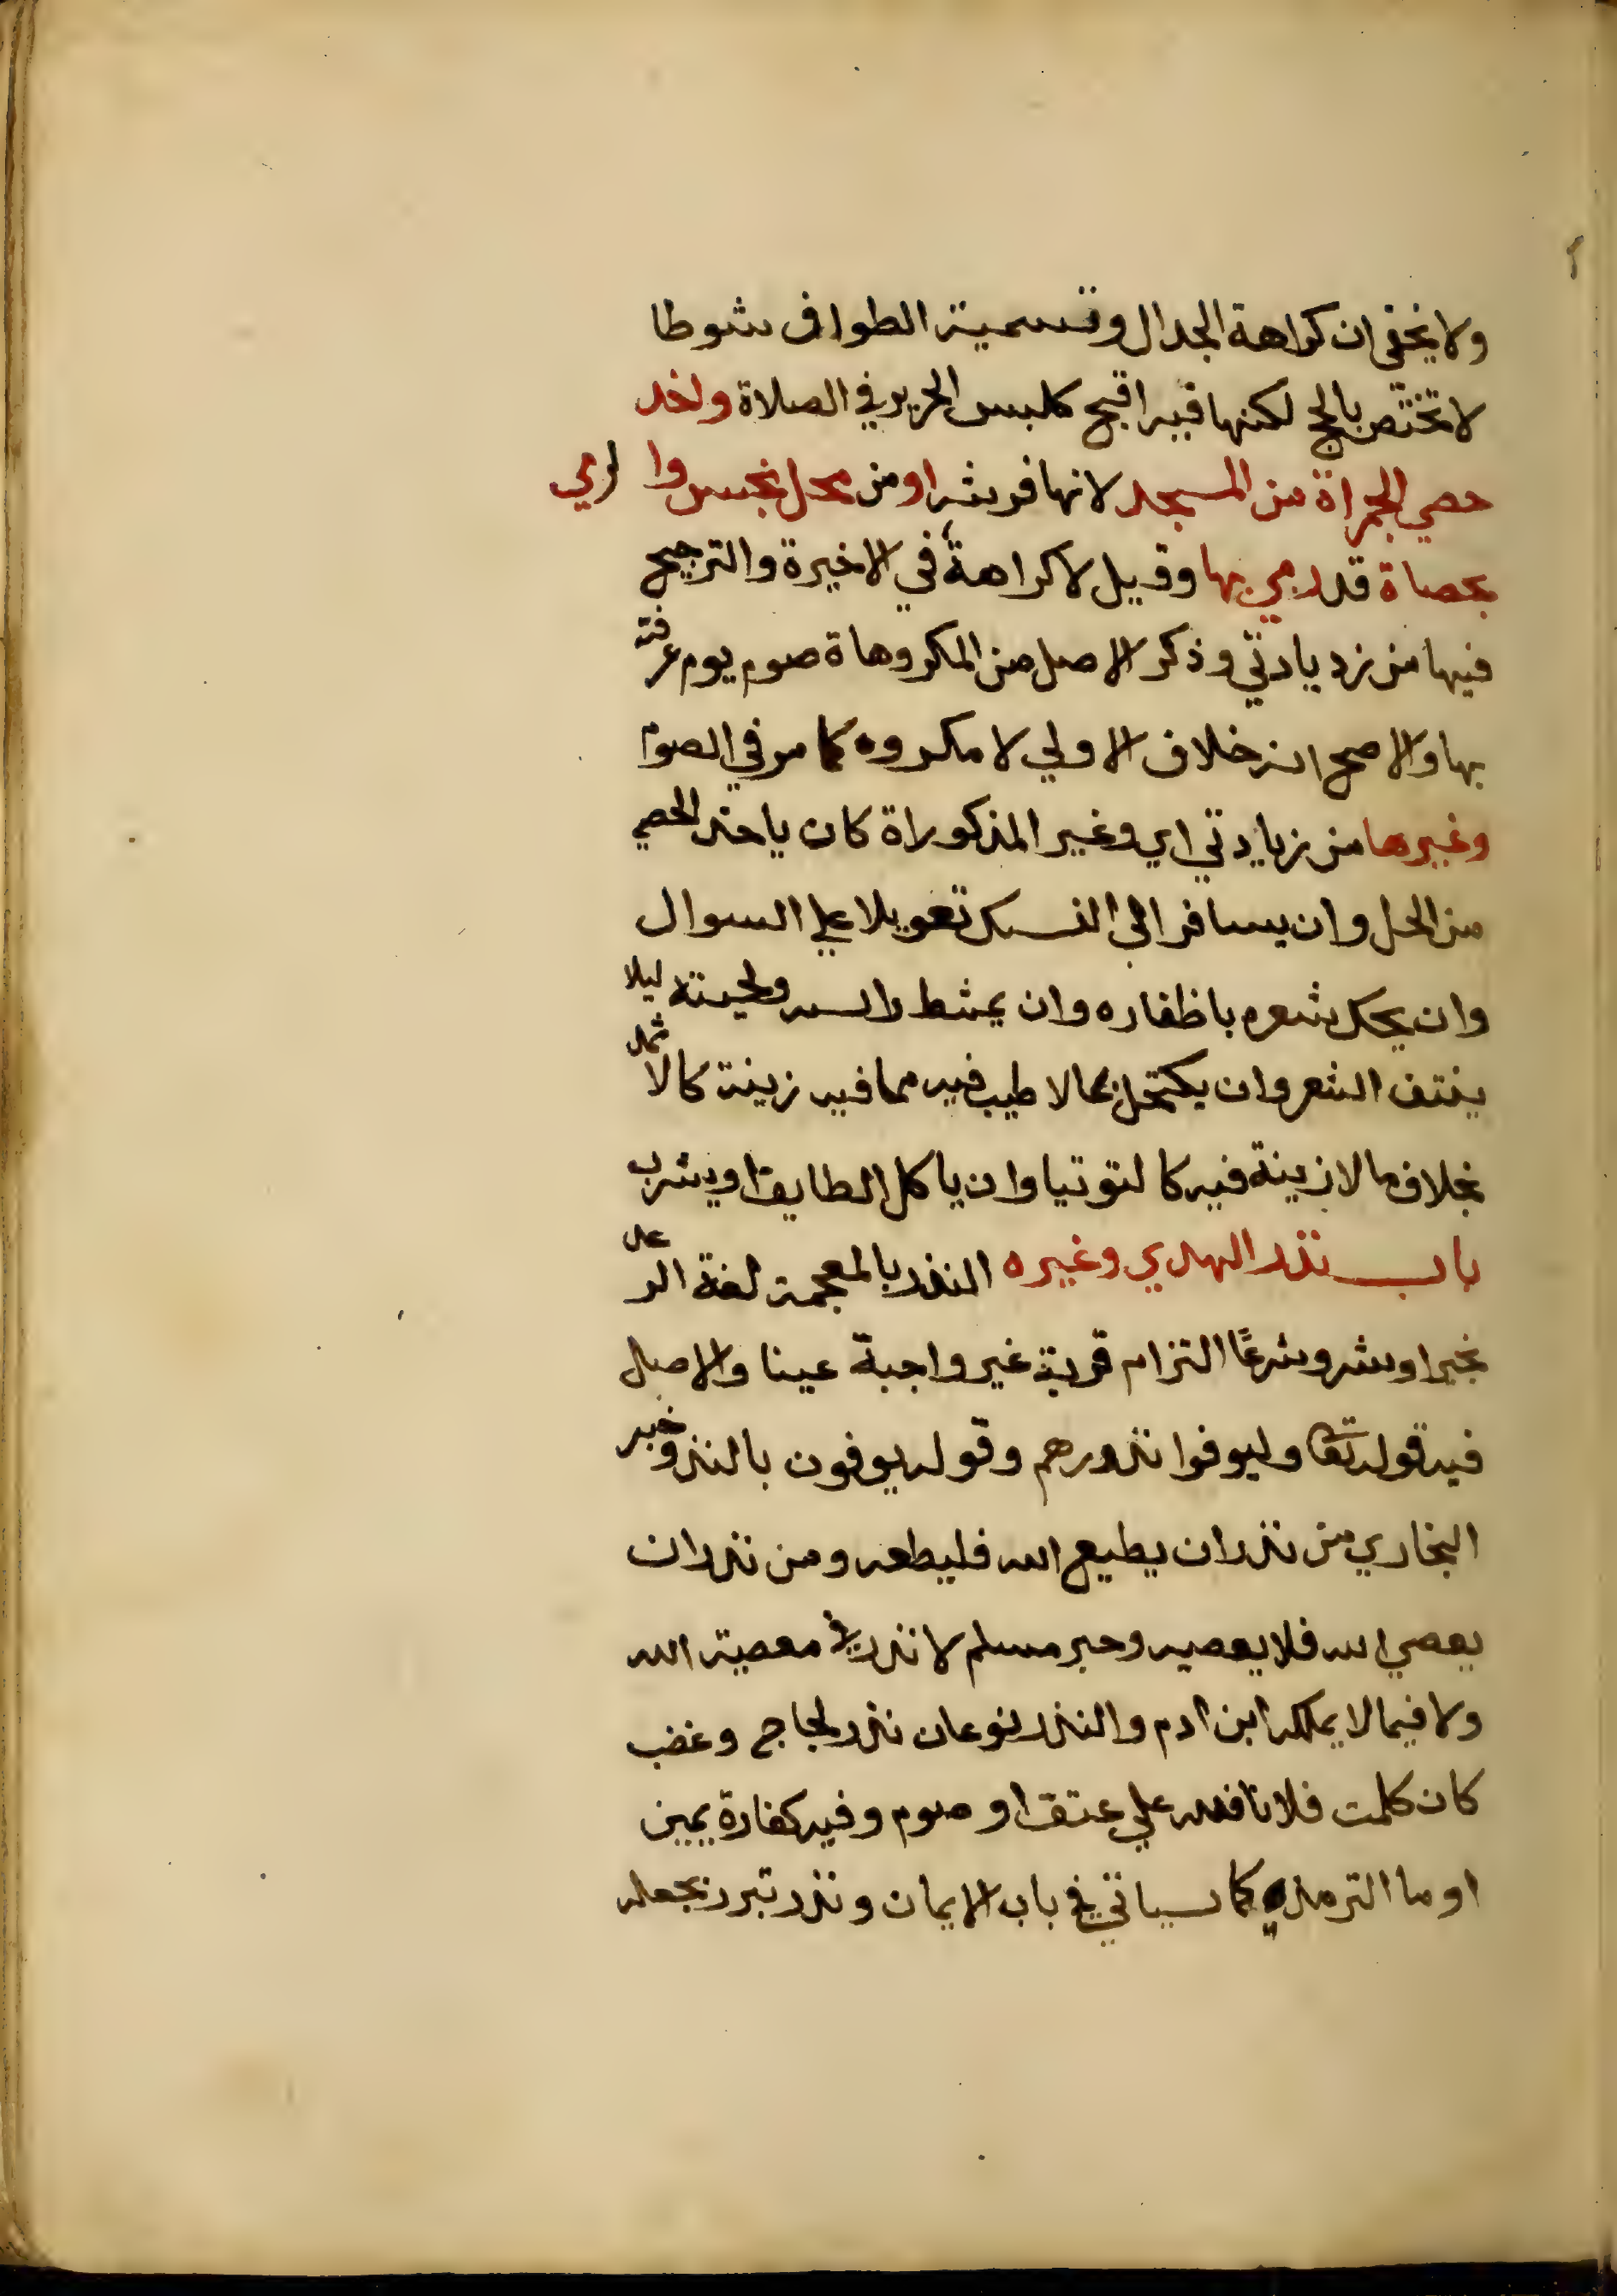 ولا يخفى ان كراهة الجدال وتسمية الطواف شوطا
لا تختص بالحج لكنها فيه اقبح كلبس الحرير في الصلاة واخذ
حصي الجمراة من المسجد لانها فرشه او من محل نجس والرمي
بحصاة قد رمي بها وقيل لا كراهة في الاخيرة والترجيح
فيها من زديادتي وذكر الاصل من المكروهاة صوم يوم عرفة
بها والاصح انه خلاف الاولي لا مكروه كما مر في الصوم
وغيرها من زيادتي اي وغير المذكوراة كان ياخذ الحصي
من الحل وان يسافر الي النسك تعويلا علي السوال
وان يحك شعره باظفاره وان يمشط راسه ولحيته ليلا
ينتف الشعر وان يكتحل بما لا طيب فيه مما فيه زينة كالاثمد
بخلاف ما لا زينة فيه كالتوتيا وان ياكل الطايف او يشرب
باب نذر الهدي وغيره النذر بالمعجمة لغة الوعد
بخير او بشر وشرعًا التزام قربة غير واجبة عينا والاصل
فيه قوله تعا وليوفوا نذورهم وقوله يوفون بالنذر وخبر
البخاري من نذر ان يطيع الله فليطعه ومن نذر ان
يعصي الله فلا يعصيه وخبر مسلم لا نذر في معصية الله
ولا فيما لا يملكه ابن ادم والنذر نوعان نذر لجاج وغضب
كان كلمت فلانا فلله علي عتق او صوم وفيه كفارة يمين
او ما التزمه كما سياتي في باب الايمان ونذر تبرر بجعله